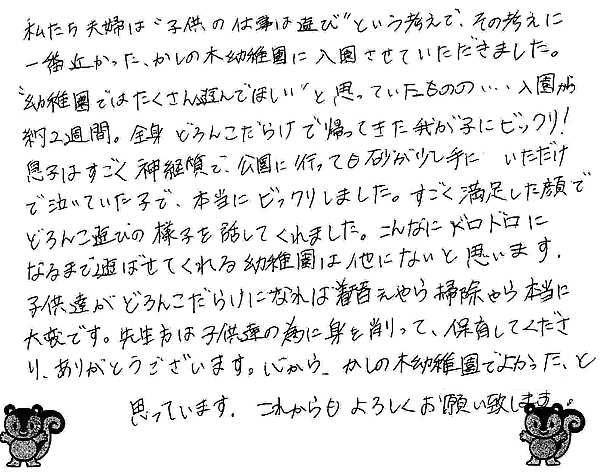 私たち夫婦は“子供の仕事は遊び”という考えで、その考えに
一番近かった、かしの木幼稚園に入園させていただきました。
“幼稚園ではたくさん遊んでほしい”と思っていたものの… 入園から
約2週間。全身どろんこだらけで帰ってきた我が子にビックリ!
息子はすごく神経質で、公園に行っても砂が少し手に いただけ
で泣いていた子で、本当にビックリしました。すごく満足した顔で
どろんこ遊びの様子を話してくれました。こんなにドロドロに
なるまで遊ばせてくれる幼稚園は他にないと思います。
子供達がどろんこだらけになれば着替えやら掃除やら本当に
大変です。先生方は子供達の為に身を削って、保育してくださ
り、ありがとうございます。心から、かしの木幼稚園でよかった、と
思っています。これからもよろしくお願い致します。